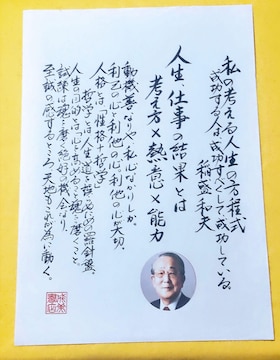 私の考える人生の方程式
成功する人は成功すべくして成功している。
稲盛和夫
人生、仕事の結果とは
考え方×熱意×能力
動機善なりや私心なかりしか。
利己の心と利他の心。利他の心が大切。
人格とは「性格+哲学」
哲学とは人生道を指し
人生の目的とは心を高めること、魂を磨くこと
試練は魂を磨く絶好の機会なり。
至誠の感ずるところ、天地もこれが為に動く。